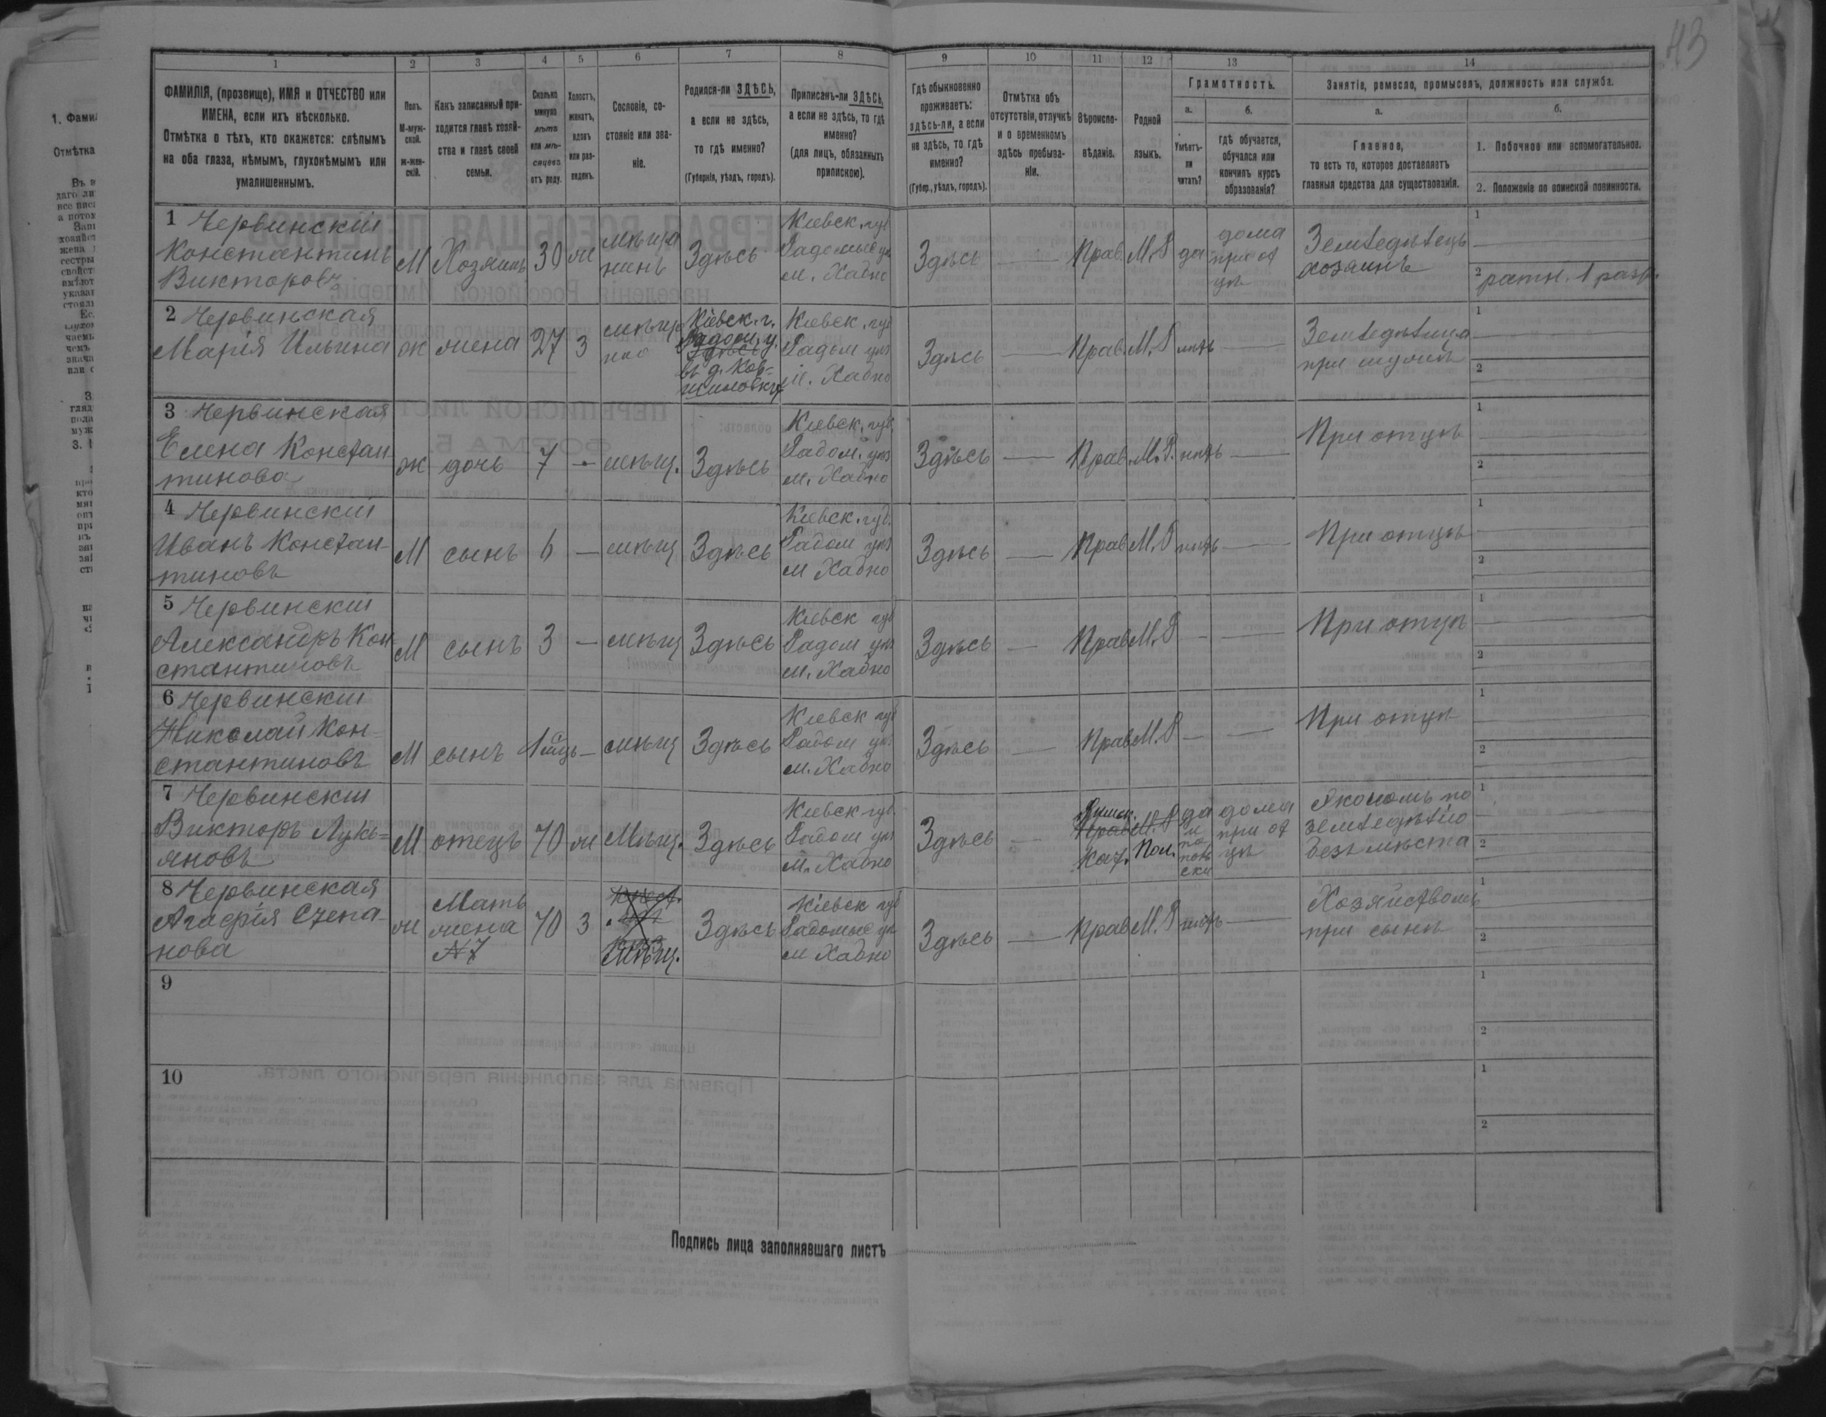 43
1 2 3 4 5 6 7 8 9 10 11 12 13 14
ФАМИЛІЯ, (прозвище), ИМЯ и ОТЧЕСТВО или
ИМЕНА, если ихъ нѣсколько.
Отмѣтка о тѣхъ, кто окажется: слѣпымъ
на оба глаза, нѣмымъ, глухонѣмымъ или
умалишеннымъ.
Полъ.
М-муж-
ской.
ж-жен-
скій.
Какъ записанный при-
ходится главѣ хозяй-
ства и главѣ своей
семьи.
Сколько
минуло
лѣтъ
или мѣ-
сяцевъ
отъ роду.
Холостъ,
женатъ,
вдовъ
или раз-
веденъ.
Сословіе, со-
стояніе или зва-
ніе.
Родился-ли ЗДѢСЬ,
а если не здѣсь,
то гдѣ именно?
(Губернія, уѣздъ, городъ).
Приписанъ-ли ЗДѢСЬ,
а если не здѣсь, то гдѣ
именно?
(для лицъ, обязанныхъ
припискою).
Гдѣ обыкновенно
проживаетъ:
здѣсь-ли, а если
не здѣсь, то гдѣ
именно?
(Губер., уѣздъ, городъ).
Отмѣтка объ
отсутствіи, отлучкѣ
и о временномъ
здѣсь пребыва-
ніи.
Вѣроиспо-
вѣданіе.
Родной
языкъ.
Грамотность.
а.
Умѣетъ-
ли
читать?
б.
гдѣ обучается,
обучался или
кончилъ курсъ
образованія?
Занятіе, ремесло, промыселъ, должность или служба.
а.
Главное,
то есть то, которое доставляетъ
главныя средства для существованія.
б.
1. Побочное или вспомогательное.
2. Положеніе по воинской повинности.
1 Червинскій
Константинъ
Викторовъ
М
Хозяинъ
30
ж
мѣща
нинъ
Здѣсь
Кіевск. губ
Радомыс у
м. Хабно
Здѣсь
—
Прав.
М.Р
да
дома
при от
цѣ
Земледѣлецъ
хозяинъ
1
2 ратн. 1 разр.
2 Червинская
Марія Ильина
ж
жена
27
3
Кіевск. г.
Радом. у.
Здѣсь
Кіевск. губ
Радом уѣз
м. Хабно
Здѣсь
—
Прав.
М.Р
нѣтъ
—
при мужѣ
1
2
3 Червинская
Елена Констан
тинова
ж
дочь
7
—
мѣщ.
Здѣсь
Кіевск. губ.
Радом. уѣз
м. Хабно
Здѣсь
—
Прав.
М.Р.
нѣтъ
—
При отцѣ
1
2
4 Червинскій
Иванъ Констан-
тиновъ
М
сынъ
6
—
мѣщ
Здѣсь
Кіевск. губ.
Радом уѣз
м Хабно
Здѣсь
—
Прав
М.Р
нѣтъ
—
При отцѣ
1
2
5 Червинскій
Александръ Кон
стантиновъ
М
сынъ
3
—
мѣщ
Здѣсь
Кіевск губ
Радом уѣз
м. Хабно
Здѣсь
—
Прав
М.Р
—
—
При отцѣ
1
2
6 Червинскій
Николай Кон-
стантиновъ
М
сынъ
—
мѣщ
Здѣсь
Кіевск губ
Радом уѣз
м. Хабно
Здѣсь
—
Прав
М.Р
—
—
При отцѣ
1
2
7 Червинскій
Викторъ Лукь=
яновъ
М
отецъ
70
ж
Мѣщ.
Здѣсь
Кіевск губ.
Радом уѣз
м. Хабно
Здѣсь
—
Римск.
Прав
Кат.
М.Р
Пол.
да
и
по
поль
ски
дома
при от
цѣ
Экономъ по
земледѣлію
безъ мѣста
1
2
8 Червинская
Агафія Степа-
нова
ж
Мать
жена
№7
70
3
Мѣщ.
Здѣсь
Кіевск губ
Радомыс у
м Хабно
Здѣсь
—
Прав
М.Р
нѣтъ
—
Хозяйствомъ
при сынѣ
1
2
9
1
2
10
1
2
Подпись лица заполнявшаго листъ